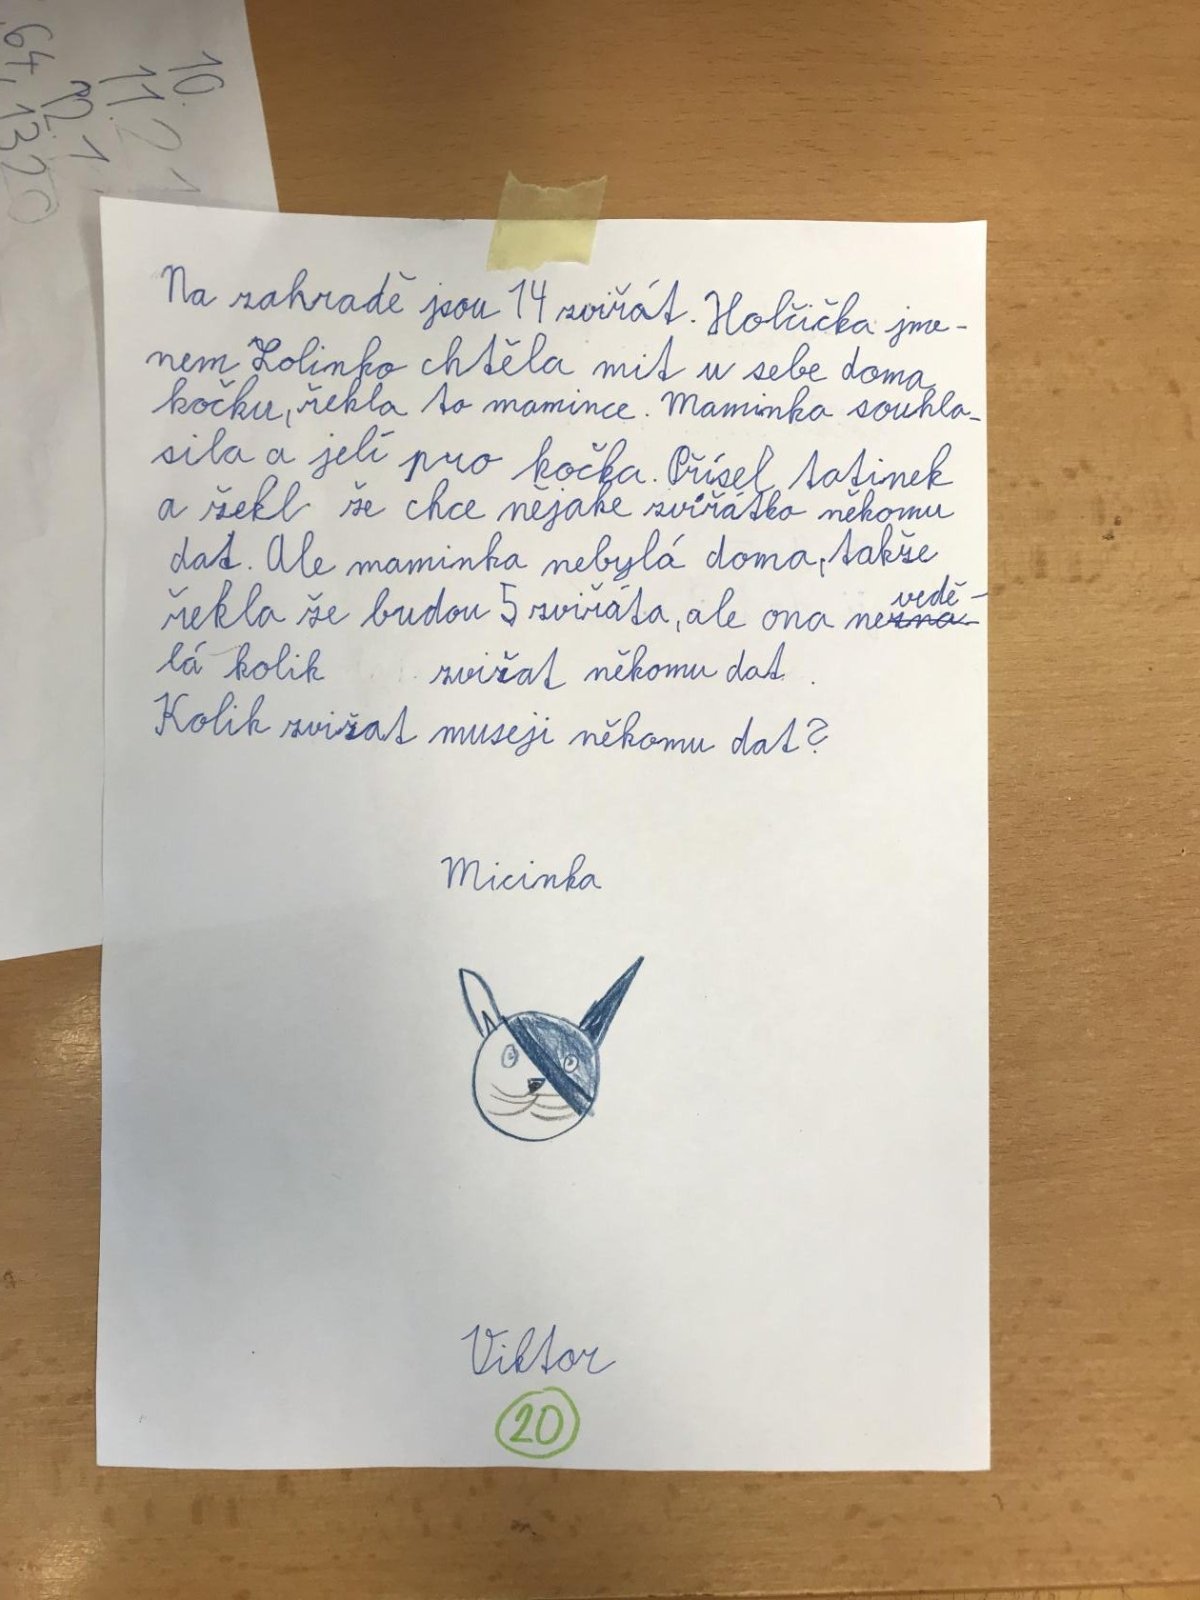 10.
11. 2 1
64, 132
Na zahradě jsou 14 zviřát. Holčička jme-
nem Lolinko chtěla mit u sebe doma
kočku, řekla to mamince. Maminka souhla-
sila a jelí pro kočka. Přísel tatinek
a řekl še chce nějake zviřátko někomu
dat. Ale maminka nebylá doma, takše
řekla še budou 5 zviřáta, ale ona nezna vedě-
lá kolik zvižat někomu dat.
Kolik zvižat museji někomu dat?
Micinka
Viktor
20